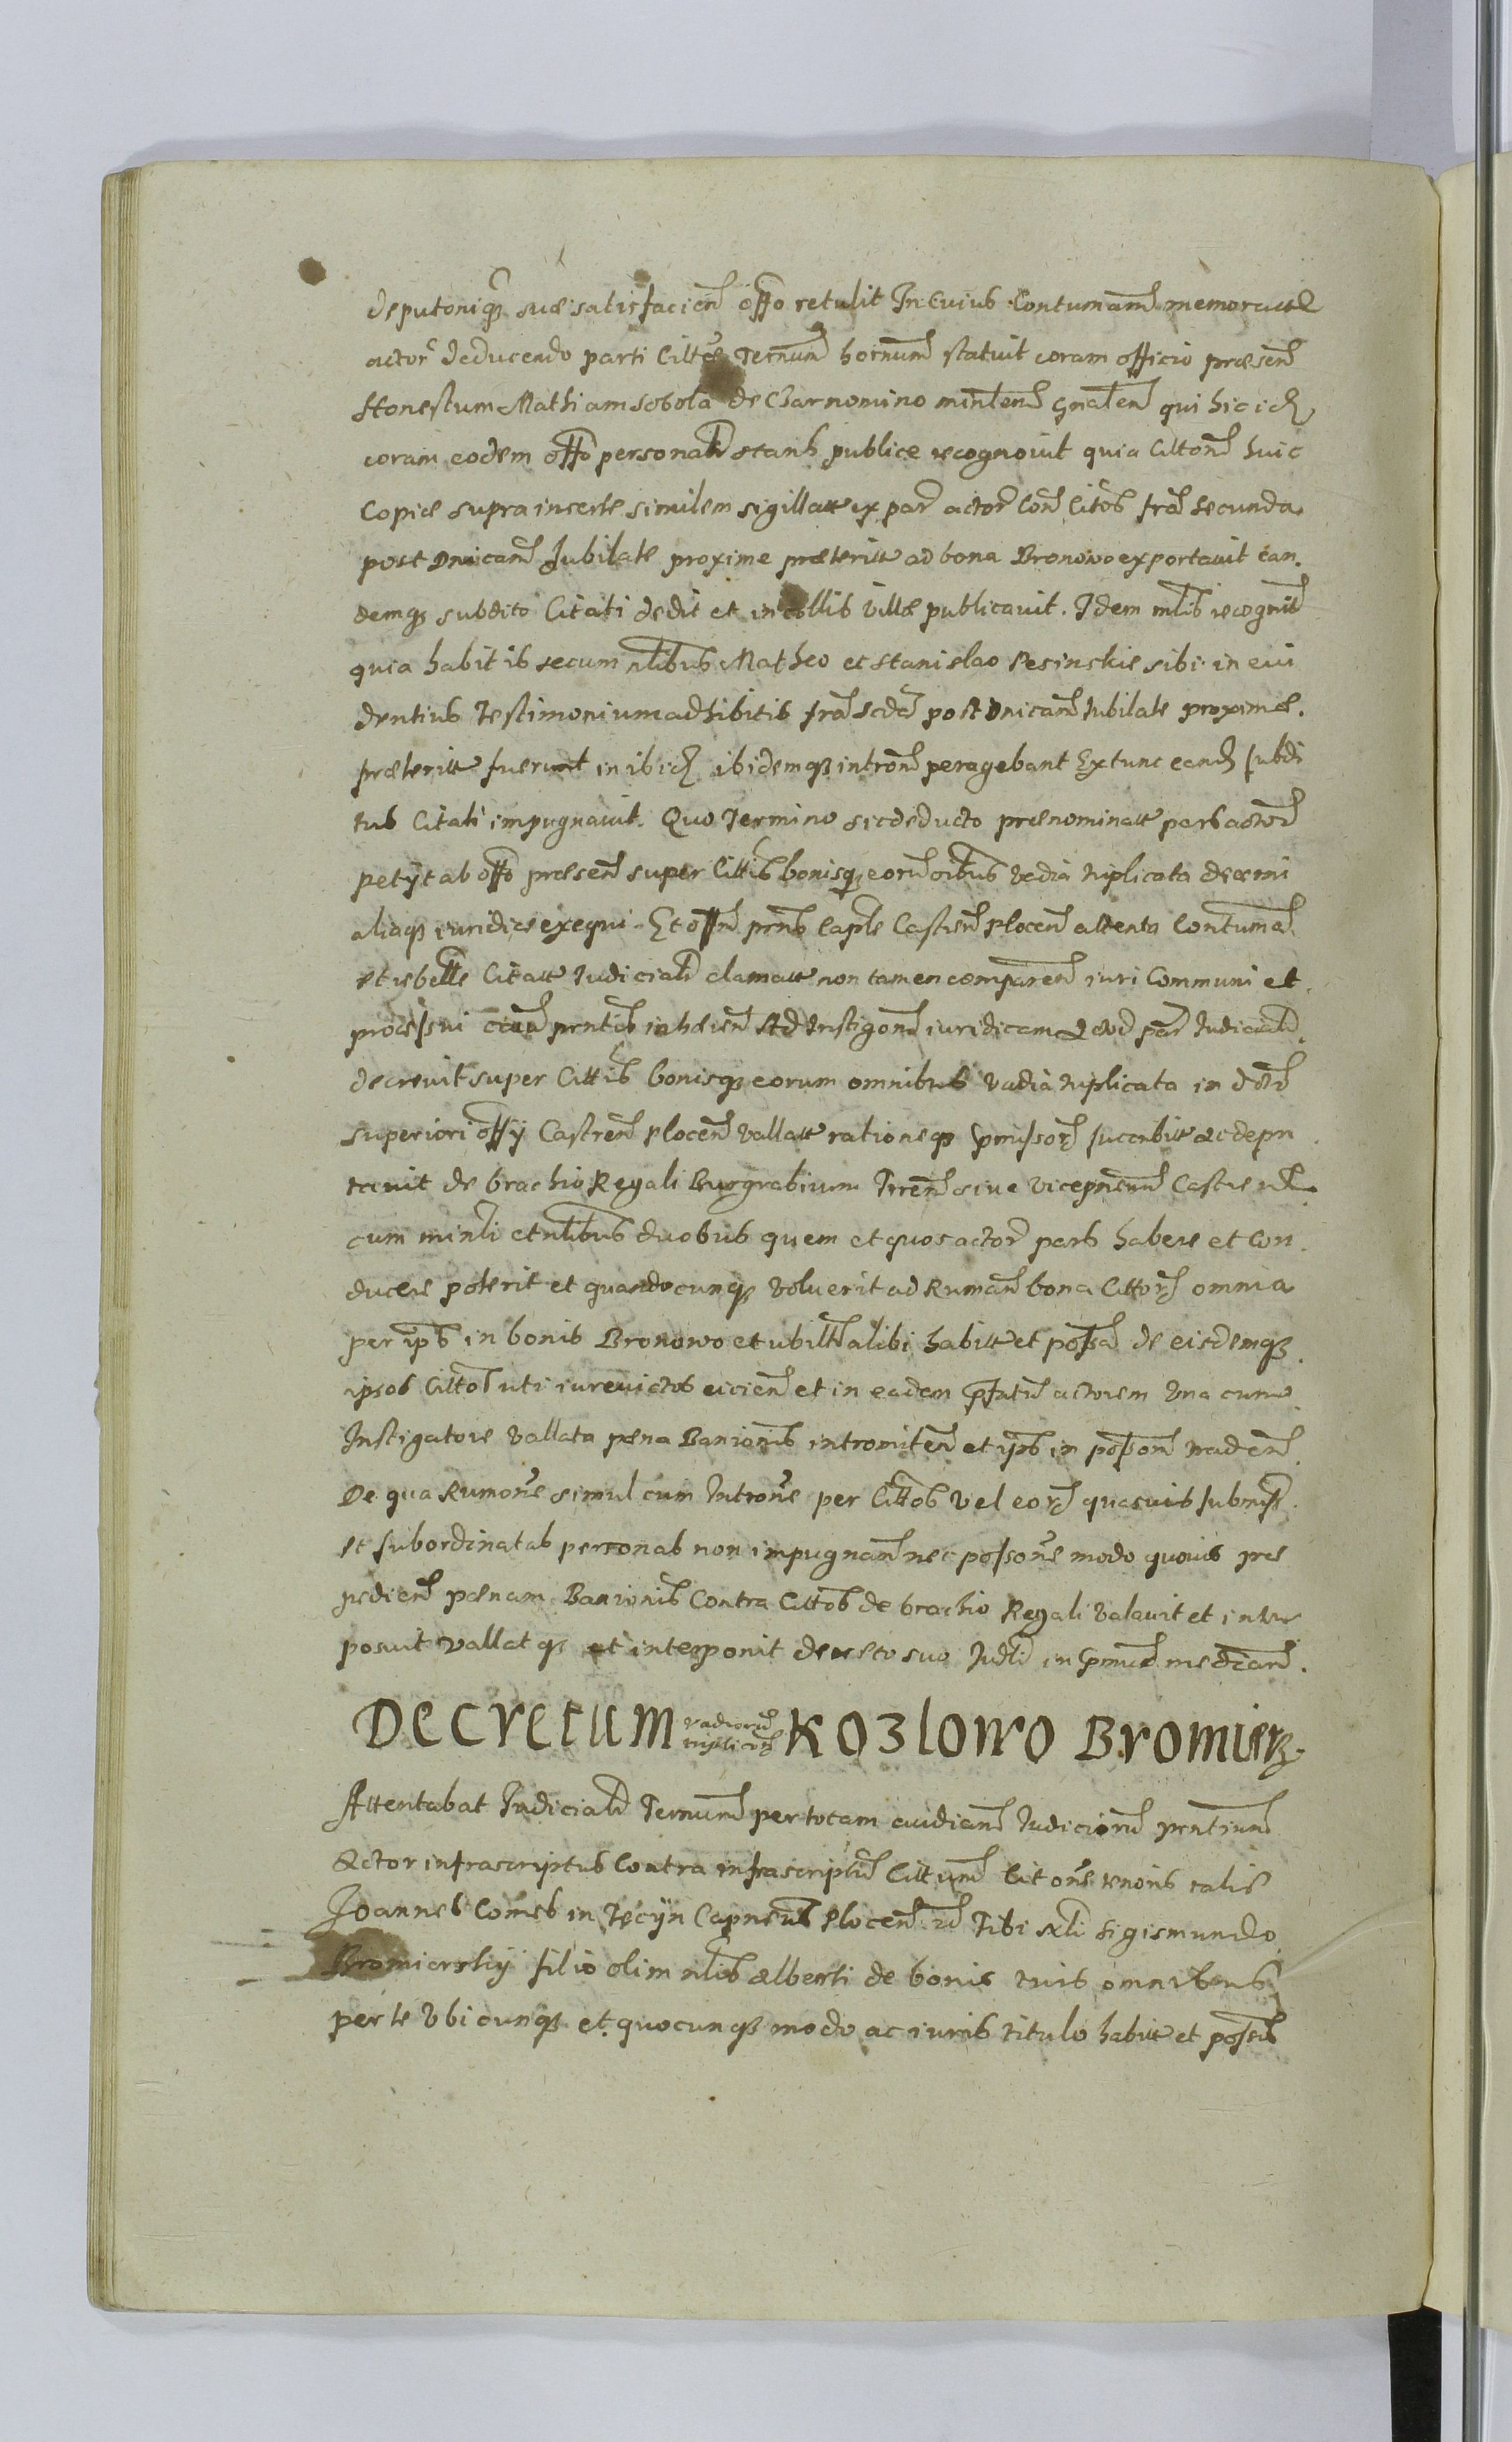 deputoniq₃ suae satisfacien̄ offo retulit In Cuius Contumam̄ memoratt
actor̄ deducendo parti Cittae Ternum̄ hornum̄ statuit coram officio praesen̄
Honestum Mathiam Sobola de Charnomino minlem̄ gnalem̄ qui hic id
coram eodem offo personal̄r stans publice recognovit quia Citton̄ huic
Copiae supra inserte similem sigillatt ex par̄ actor̄ Con̄ Citos fr̄a secunda
post Dnicam̄ Jubilate proxime praeteritt ad bona Bronowo exportavit ean
demq₃ subdito Citati dedit et in collis villae publicavit. Idem mlis recognit
quia habitis secum nlibus Matheo et Stanislao Pesinskie sibi in evi
dentius Testimonium adhibitis fr̄a Scdā post Dnicam̄ Jubilate proximae
praeteritt fuerunt in ibid ibidemq₃ intron̄ peragebant Extunc eand subdi
tus Citati impugnavit. Quo Termino sic deducto praenominatt pars actor̄
petyt ab offo praesen̄ super Cittis bonisq₃ eorum̄ oibus vadia triplicata decerni
aliaq₃ iuridice exequi. Et offm̄ prns Caple Castren̄ Plocen̄ attenta Contuma
et rebelle Citatt Judicial̄r clamatt non tamen comparen̄ iuri Communi et
processui prntis inhaeren̄ Ad Instigon̄ iuridicam actor̄ par̄ Judicial̄r
decrevit super Cittis bonisq₃ eorum omnibus vadia triplicata in
superiori offy Castren̄ Plocen̄ vallatt rationeq₃ pmissor̄ succubitt ac depu
tavit de brachio Regali Burgrabium Tren̄ sive vicepneum̄ Castren
cum minli et nlibus duobus quem et quos actor̄ pars habere et Con
ducere poterit et quandocunq₃ voluerit ad Ruman̄ bona Cittor̄ omnia
per ips̄ in bonis Bronowo et ubilt alibi habitt et possa de eisdemq₃
ipsos Cittos uti iurevictos eicien̄ et in eadem pfatu actorem Una cum
Instigatore vallata pena Banionis intromitten̄ et ips̄ in posson̄ traden̄
De qua Rumone simul cum Introne per Cittos vel eor̄ quasvis submiss
et subordinatas personas non impugnan̄ nec possone modo quovis prae
pedien̄ paenam Banionis Contra Cittos de brachio Regali valavit et inter
posuit vallatq₃ et interponit decreto suo Judli in pmiss̄ median̄.
Decretum vadiorum triplicor̄ Kozlowo Bromierz
Attentabat Judicial̄r Ternum̄ per totam audian̄ Judiciorum̄ prntium̄
Actor infrascriptus Contra infrascriptum̄ Cittum̄ Citone tenoris talis
Joannes Comes in Teczyn Capneus Plocen̄ Tibi nli Sigismundo
Bromierskij filio olim nlis Alberti de bonis tuis omnibus
per te Ubicunq₃ et quocunq₃ modo ac iuris titulo habitt et possis